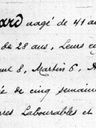 ard aagé de 41 an
de 28 ans, Leurs co
8, Martin 6, A
de cinq semaine
res Labourables et